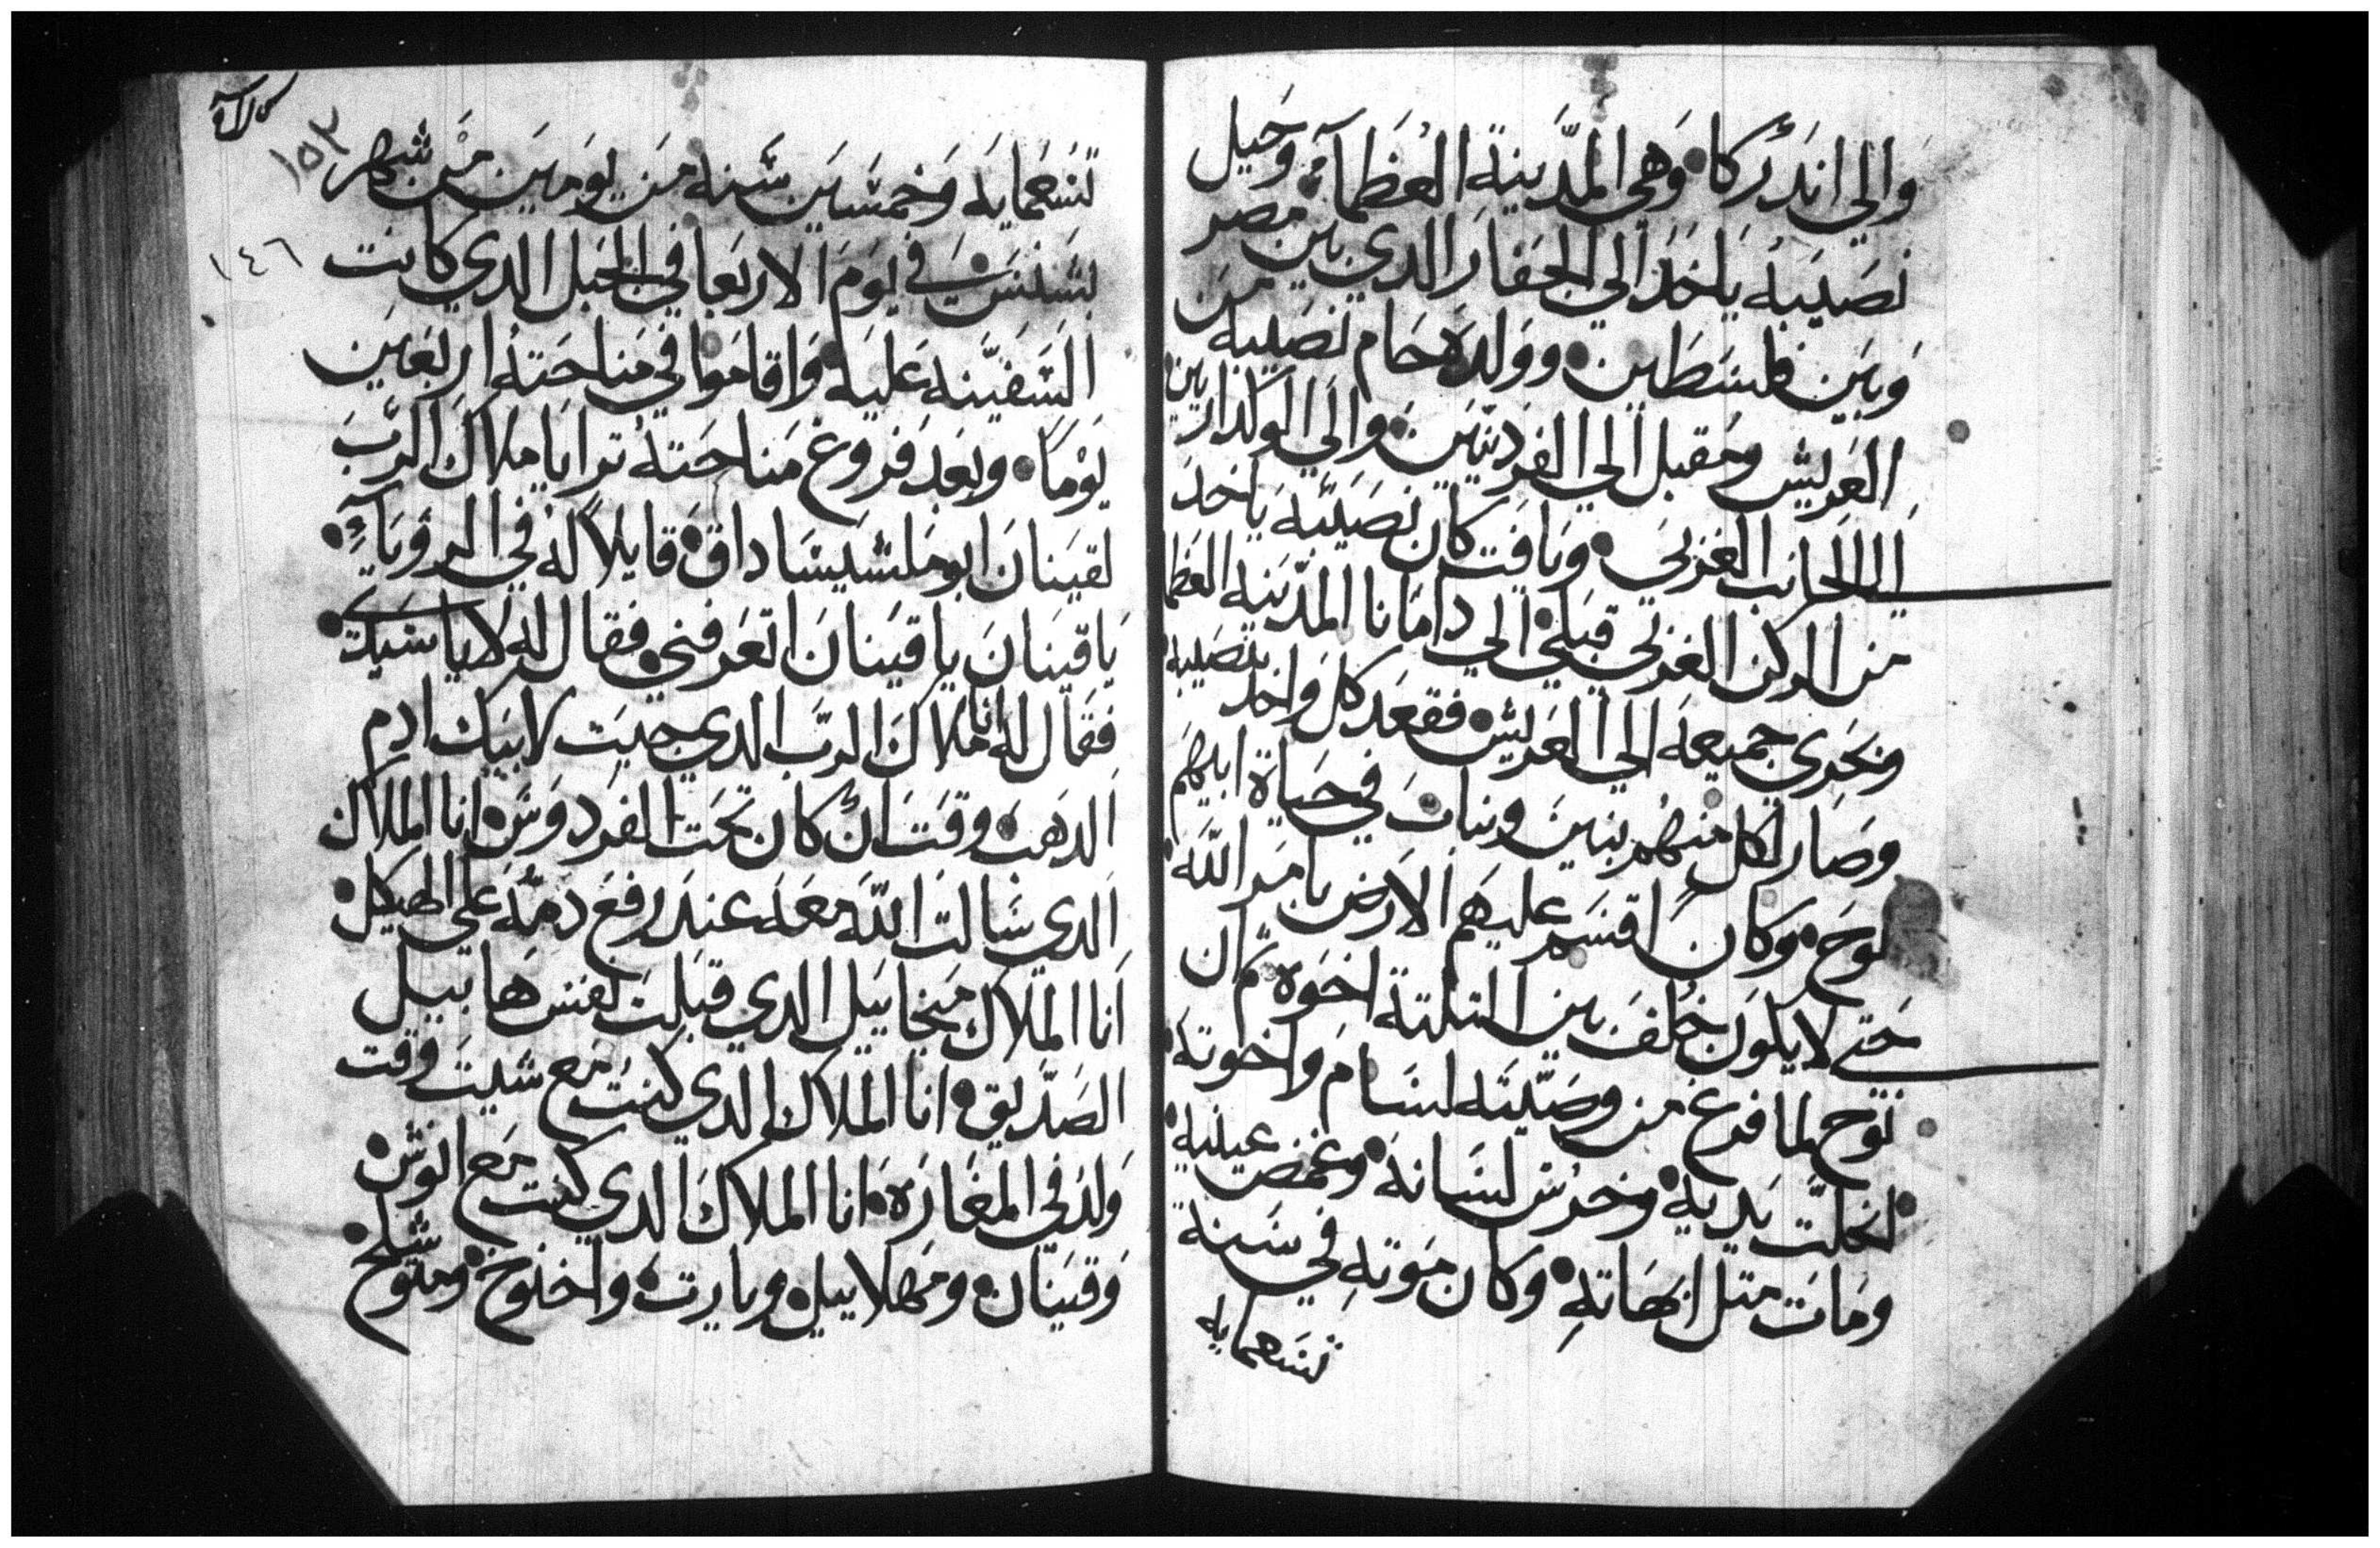 والي اندركا وهي المدينة العظمآ وجيل
نصيبه ياخد الي الجفار الدي بين مصر
وبين فلسطين وولده حام نصيبه من
العريش ومقبل الي الفردتين والي
الا الجانب الغربي ويافت كان نصيبه ياخد
من الركن الغربي قبلي الي دامانا المدينه العظما
ونحري جميعه الي العريش فقعد كل واحد بنصيبه
وصار لكل منهم بنين وبنات في حياة ابيهم
نوح وكان اقسم عليهم الارض بامر الله
حتي لا يكون خلف بين التلتة اخوه تم ان
نوح لما فرغ من وصيته لسام واخوته
انحلت يديه وخرس لسانه وغمض عينيه
ومات متل ابهاته وكان موته في سنة
تسعمايه
١٥٣
تسعمايه وخمسين سنه من يومين من شهر
١٤٦
بشنس في يوم الاربعا في الجبل الدي كانت
السفينه عليه واقاموا في مناحته اربعين
يوما وبعد فروغ مناحته ترايا ملاك الرب
لقينان ابو ملشيساداق قايلا له في الروياء
يا قينان يا قينان اتعرفني فقال له لا يا سيدي
فقال له انا ملاك الرب الدي جيت لابيك ادم
الدهب وقت ان كان تحت الفردوس انا الملاك
الدي سالت الله معه عند رفع دمه علي الهيكل
انا الملاك ميخاييل الدي قبلت نفس هابيل
الصديق انا الملاك الدي كنت مع شيت وقت
ولد في المغاره انا الملاك الدي كنت مع انوش
وقينان ومهلاييل ويارت واخنوخ ومتوشلخ